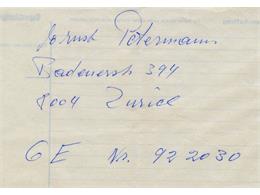 Petermann
Badenerstr 394
8004 Zürich
GE Nr. 92 20 30